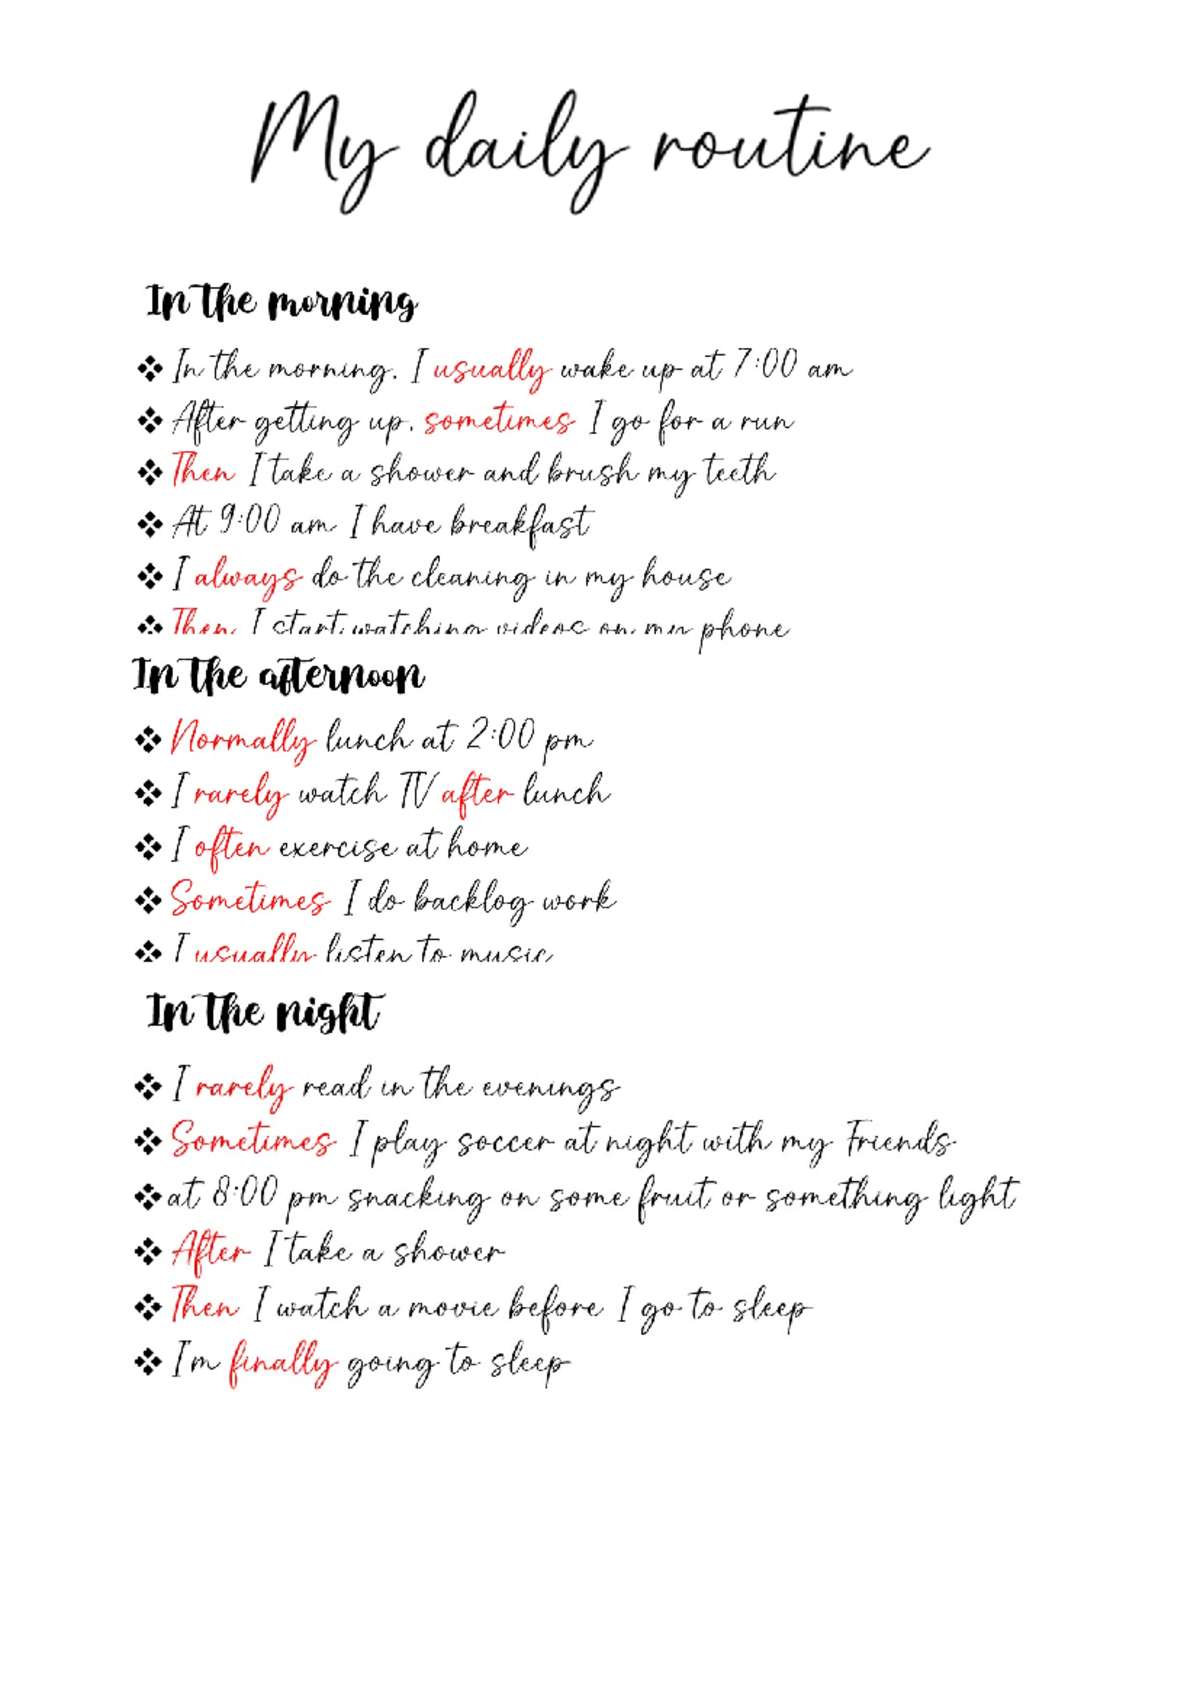 My daily routine
In the morning
❖ In the morning, I usually wake up at 7:00 am
❖ After getting up, sometimes I go for a run
❖ Then I take a shower and brush my teeth
❖ At 9:00 am I have breakfast
❖ I always do the cleaning in my house
❖ Then I start watching videos on my phone
In the afternoon
❖ Normally lunch at 2:00 pm
❖ I rarely watch TV after lunch
❖ I often exercise at home
❖ Sometimes I do backlog work
❖ I usually listen to music
In the night
❖ I rarely read in the evenings
❖ Sometimes I play soccer at night with my Friends
❖ at 8:00 pm snacking on some fruit or something light
❖ After I take a shower
❖ Then I watch a movie before I go to sleep
❖ I'm finally going to sleep